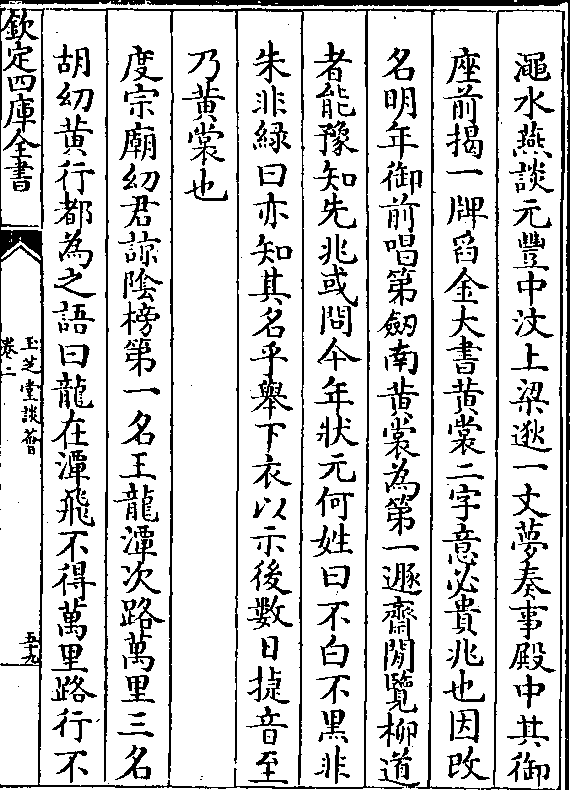 澠水燕談元豐中汶上梁逖一丈夢奏事殿中其御
座前揭一牌舀金大書黄裳二字意必貴兆也因改
名明年御前唱第劒南黄裳為第一遯齋閒覽柳道
者能豫知先兆或問今年狀元何姓曰不白不黑非
朱非緑曰亦知其名乎舉下衣以示後數日㨗音至
乃黄裳也
度宗廟幼君諒陰榜第一名王龍潭次路萬里三名
胡幼黄行都為之語曰龍在潭飛不得萬里路行不
欽定四庫全書
玉芝堂談薈
卷二
五十九